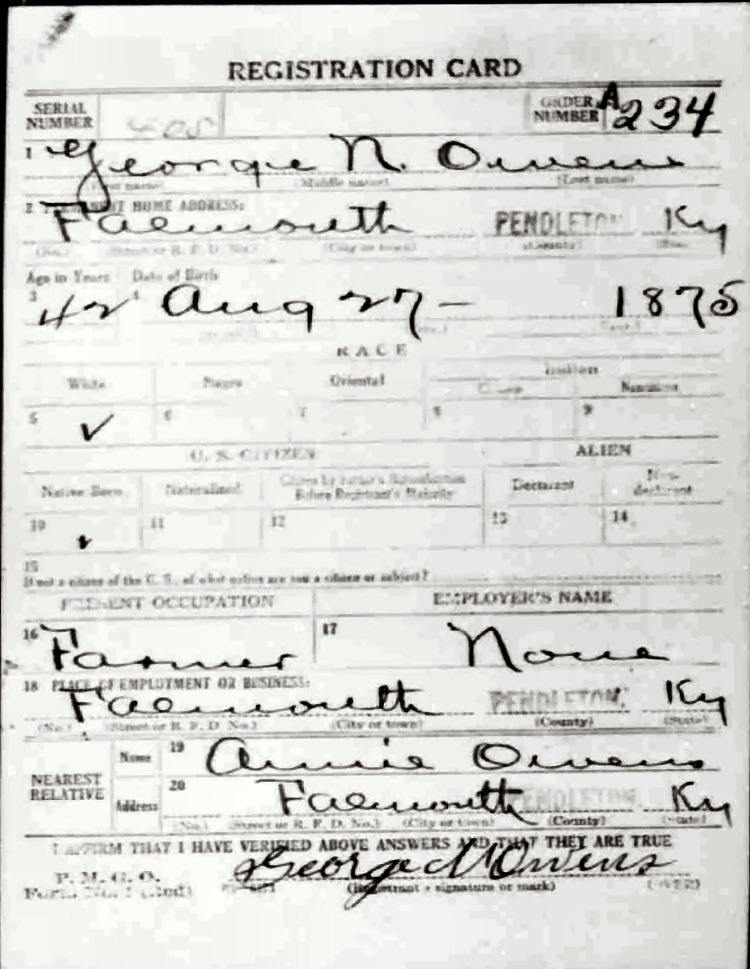 REGISTRATION CARD
SERIAL NUMBER ORDER NUMBER A234
1 George N. Owens
(First name) (Middle name) (Last name)
2 PERMANENT HOME ADDRESS:
Falmouth PENDLETON Ky
(No.) (Street or R. F. D. No.) (City or town) (County) (State)
Age in Years Date of Birth
3 42 4 Aug 27 - 1875
RACE
White Negro Oriental Indian
Citizen Noncitizen
5 ✓ 6 7 8 9
U. S. CITIZEN ALIEN
Native Born Naturalized Citizen by Father's Naturalization Before Registrant's Majority Declarant Non-declarant
10 ✓ 11 12 13 14
15
If not a citizen of the U. S., of what nation are you a citizen or subject?
PRESENT OCCUPATION EMPLOYER'S NAME
16 Farmer 17 None
18 PLACE OF EMPLOYMENT OR BUSINESS:
Falmouth PENDLETON, Ky
(No.) (Street or R. F. D. No.) (City or town) (County) (State)
NEAREST RELATIVE
Name 19 Annie Owens
Address 20 Falmouth PENDLETON Ky
(No.) (Street or R. F. D. No.) (City or town) (County) (State)
I AFFIRM THAT I HAVE VERIFIED ABOVE ANSWERS AND THAT THEY ARE TRUE
P. M. G. O.
Form No. 1 (Red) George N Owens
(Registrant's signature or mark) (OVER)